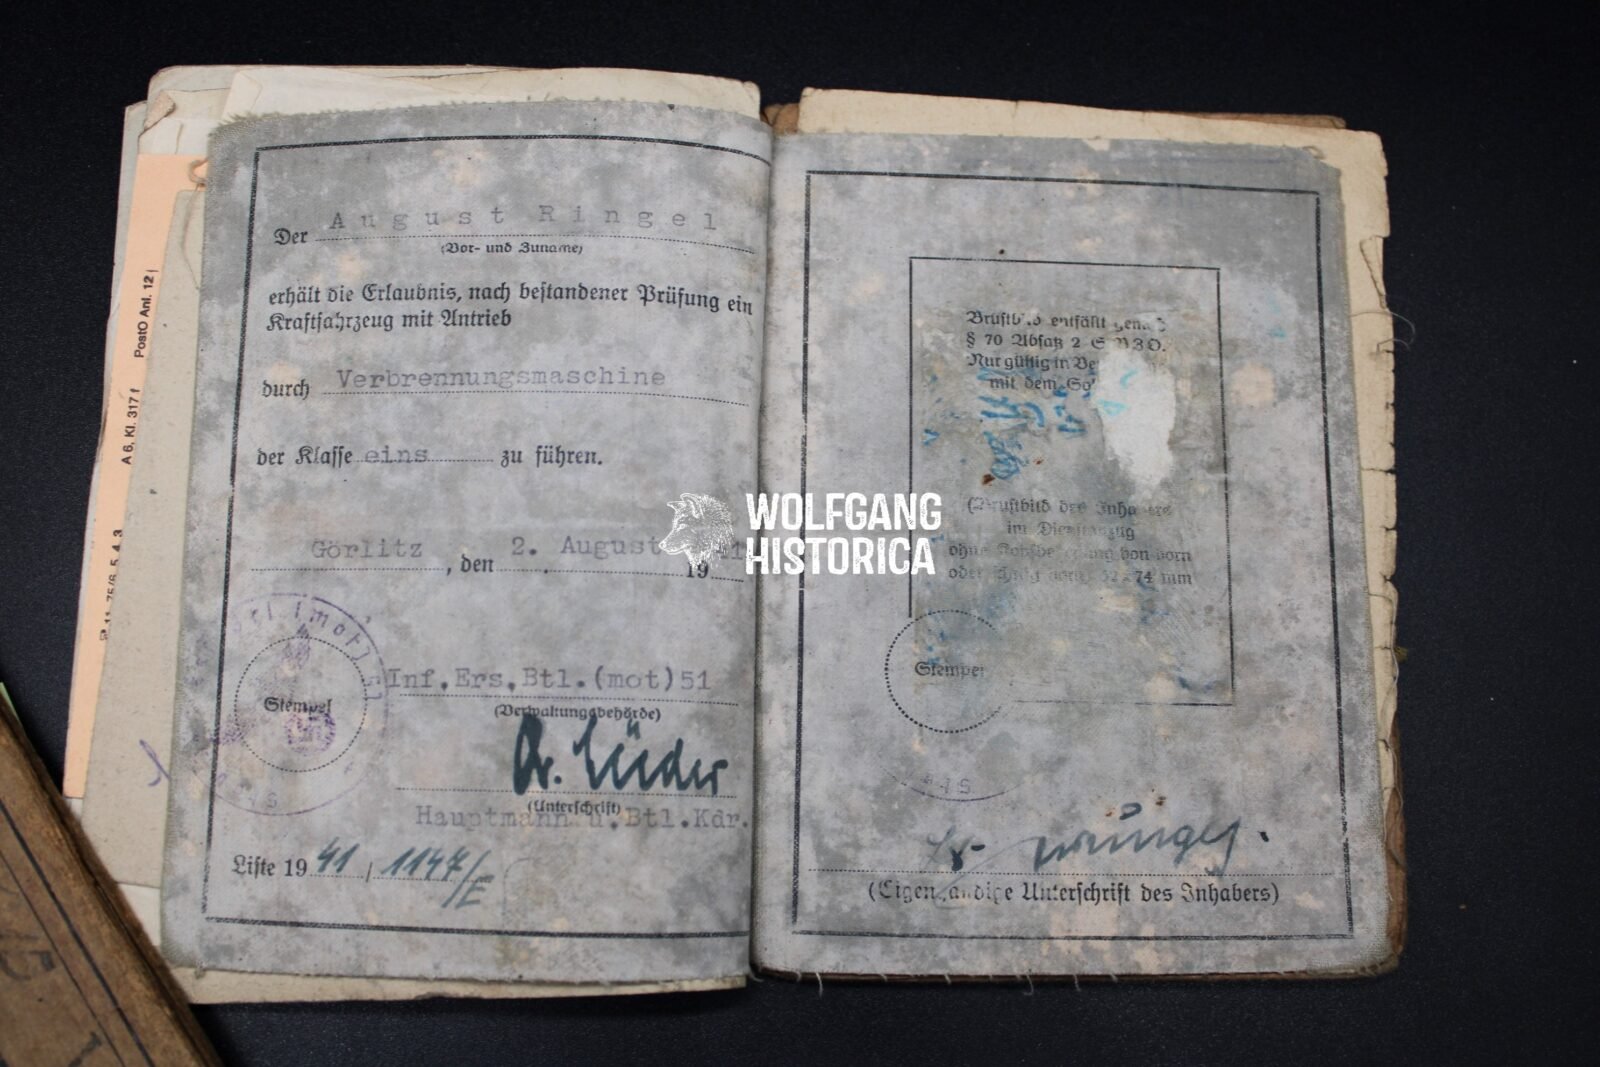 Der August Ringel
(Vor- und Zuname)
erhält die Erlaubnis, nach bestandener Prüfung ein
Kraftfahrzeug mit Antrieb
durch Verbrennungsmaschine
der Klasse eins zu führen.
Görlitz, den 2. August 19 1
Inf.Ers.Btl.(mot)51
(Verwaltungsbehörde)
Stempel
(mot) 51
(Unterschrift)
Hauptmann u. Btl.Kdr.
Liste 19 41 / 1147/E
Brustbild entfällt gem.
§ 70 Absatz 2
Nur gültig in
mit dem
(Brustbild des Inhabers
im Dienstanzug
ohne von vorn
oder 52x74 mm
Stempel
(Eigenhändige Unterschrift des Inhabers)
PostO Anl. 12
A 6, Kl. 317 f
WOLFGANG
HISTORICA